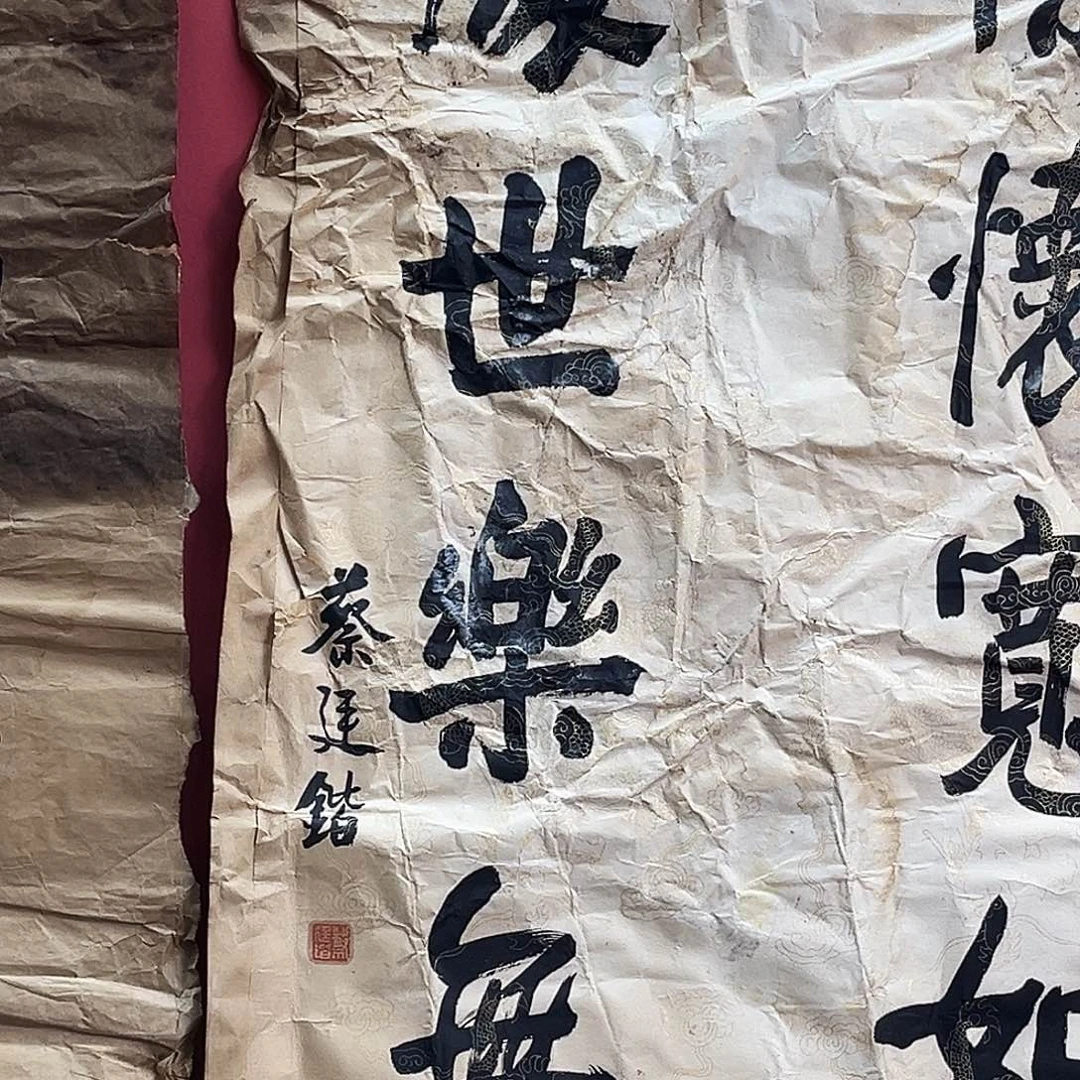 懷寬如
世樂無
蔡廷鍇